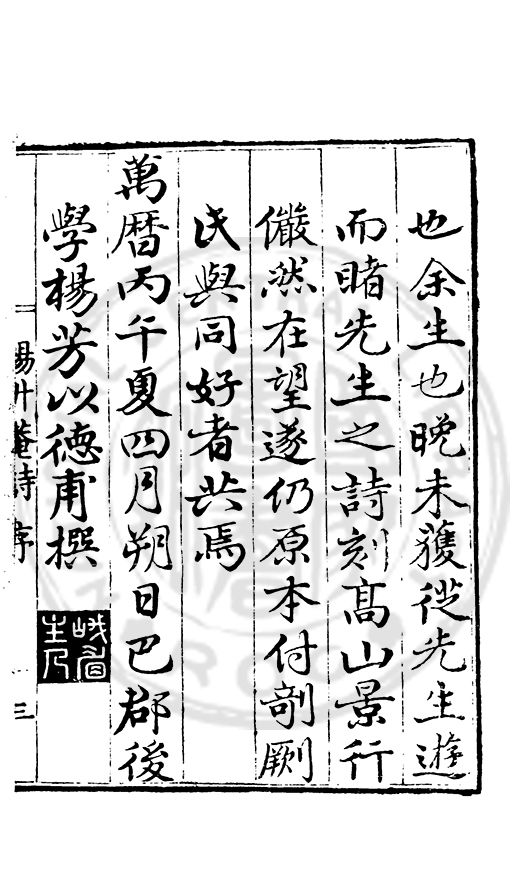 也余生也晚未獲從先生遊
而睹先生之詩刻高山景行
儼然在望遂仍原本付剞劂
氏與同好者共焉
萬曆丙午夏四月朔日巴郡後
學楊芳以德甫撰
楊升菴詩 序
三